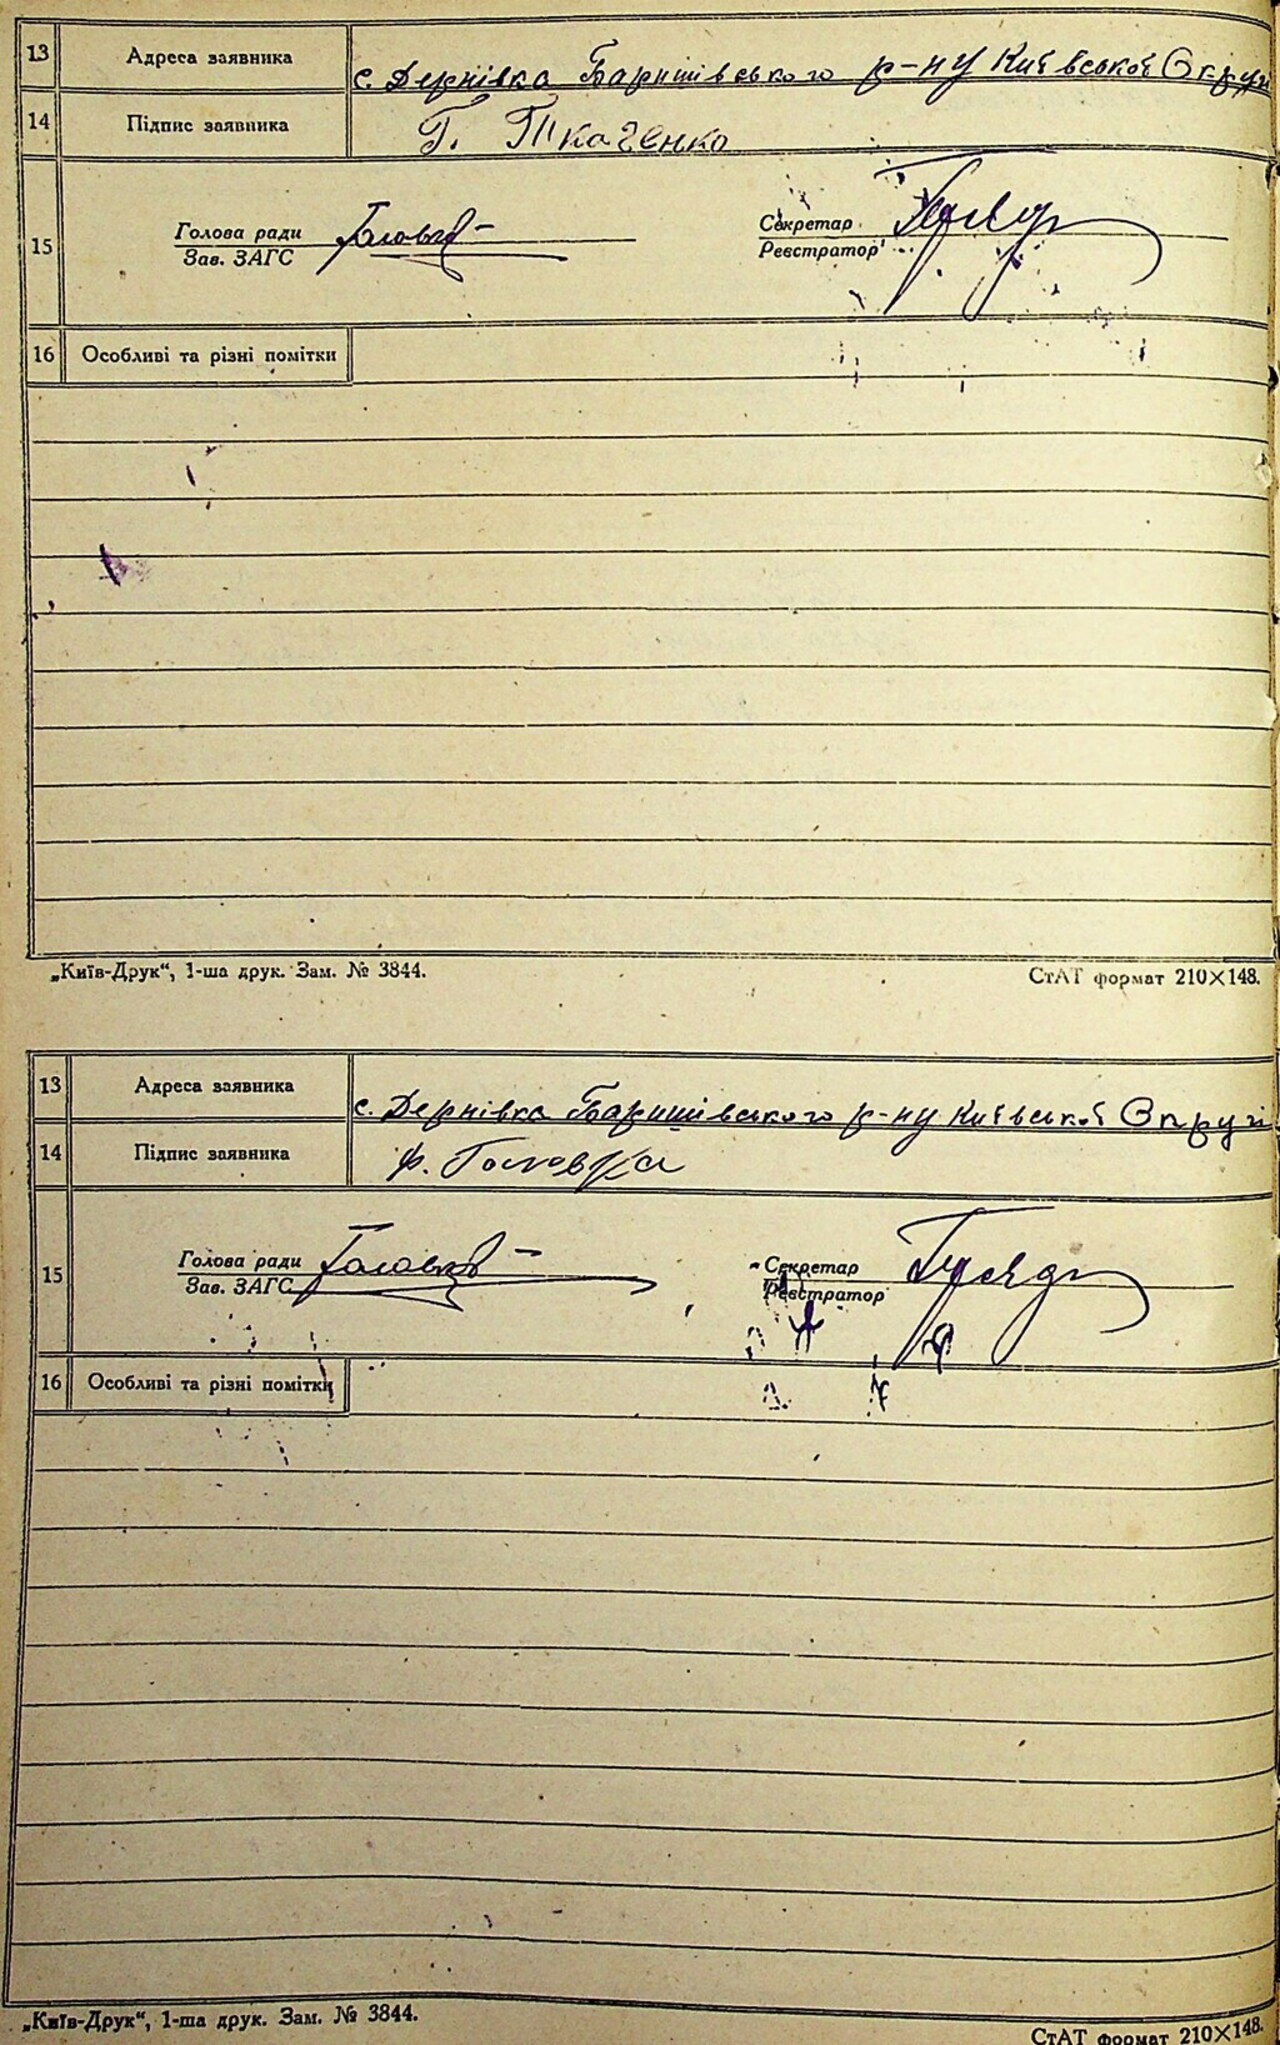 13 Адреса заявника с. Дернівка Баришівського р-ну Київської Округи
14 Підпис заявника Г. Ткаченко
15 Голова ради Секретар
Зав. ЗАГС Реєстратор
16 Особливі та різні помітки
„Київ-Друк“, 1-ша друк. Зам. № 3844. СтАТ формат 210×148.
13 Адреса заявника с. Дернівка Баришівського р-ну Київської Округи
14 Підпис заявника Ф. Головка
15 Голова ради Секретар
Зав. ЗАГС Реєстратор
16 Особливі та різні помітки
„Київ-Друк“, 1-ша друк. Зам. № 3844.
СтАТ формат 210×148.